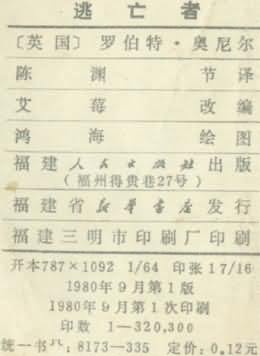 逃亡者
〔英国〕罗伯特·奥尼尔
陈渊 节译
艾莓 改编
鸿海 绘图
福建人民出版社出版
(福州得贵巷27号)
福建省新华书店发行
福建三明市印刷厂印刷
开本787×1092 1/64 印张17/16
1980年9月第1版
1980年9月第1次印刷
印数 1—320,300
统一书号:8173—335 定价:0.12元